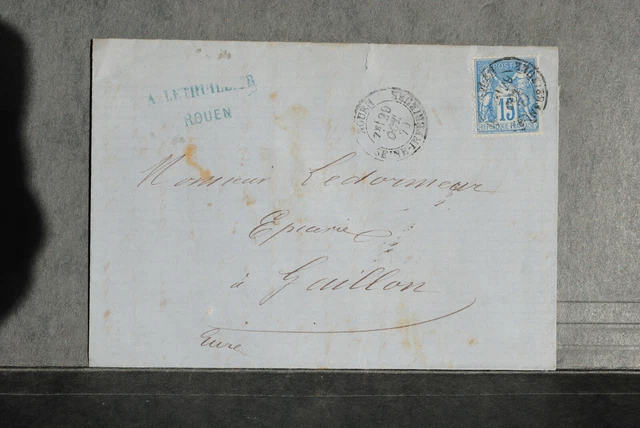 A. LETHUILLIER
ROUEN
ROUEN
OCT.
15
Monsieur Ledormeur
Epicier
à Gaillon
Eure